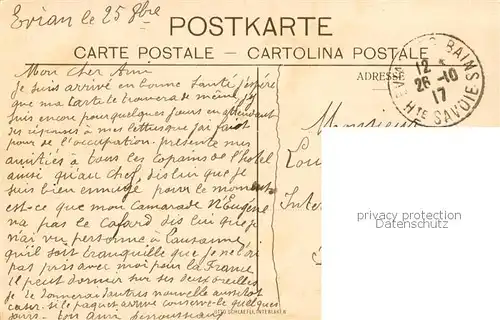 Evian le 25 8bre
POSTKARTE
CARTE POSTALE — CARTOLINA POSTALE
ADRESSE
BAINS
12
26 -10
17
Hte SAVOIE
Mon Cher Ami
Je suis arrivé en bonne Santé j'espère
que ma carte te trouvera de même je
suis encore pour quelques jours en attendant
des réponses à mes lettres que j'ai fait
pour de l'occupation. présente mes
amitiés à tous les copains de l'hotel
ainsi qu'au Chef, dis lui que je
suis bien ennuyé pour le moment
est-ce que mon Camarade Eugène
va pas le Cafard dis lui que je
n'ai vu personne à Lausanne
qu'il soit tranquille que je ne l'ai
pas pris avec moi pour la France
il peut dormir sur ses deux oreilles
je te donnerai d'autres nouvelles aussitôt
caser, si le paquet arrive conserve-le quelques
jours. ton Ami
Monsieur
Lou
Inter
OTTO SCHLAEFLI, INTERLAKEN
privacy protection
Datenschutz